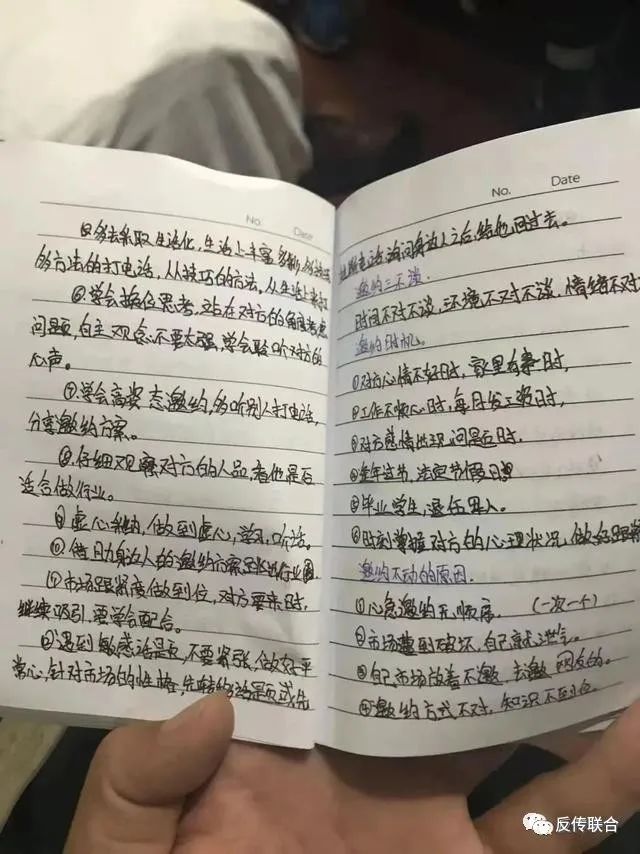 No. Date
生活化,生活上丰富
多方法的打电话,从技巧的方法,从生活上来
⑥学会换位思考,站在对方的角度考虑
问题,自主观念不要太强,学会聆听对方的
心声。
⑦学会高姿态邀约,多听别人打电话,
分享邀约方案。
⑧仔细观察对方的人品,看他是否
适合做行业。
⑨虚心接纳,做到虚心,学习,听话。
⑩借助身边人的邀约方案
⑪市场跟紧度做到位,对方要来时,
继续吸引,要学会配合。
⑫遇到敏感话题,不要紧张,做好平
常心,针对市场的性格,先转移话题或先
No. Date
电话,询问身边人之后,给他回过去。
邀约三不谈.
时间不对不谈,环境不对不谈,情绪不对
邀约时机。
①对方心情不好时,家里有事时,
②工作不顺心时,每月发工资时,
③对方感情出现问题时.
④逢年过节,法定节假日
⑤毕业学生,退伍军人。
⑥时刻掌握对方的心理状况,做好跟
邀约不动的原因.
①心急邀约无顺序. (一次一个)
②市场遭到破坏,自己
③自己市场放着不邀,去邀网友的。
④邀约方式不对,知识不到位。
反传联合